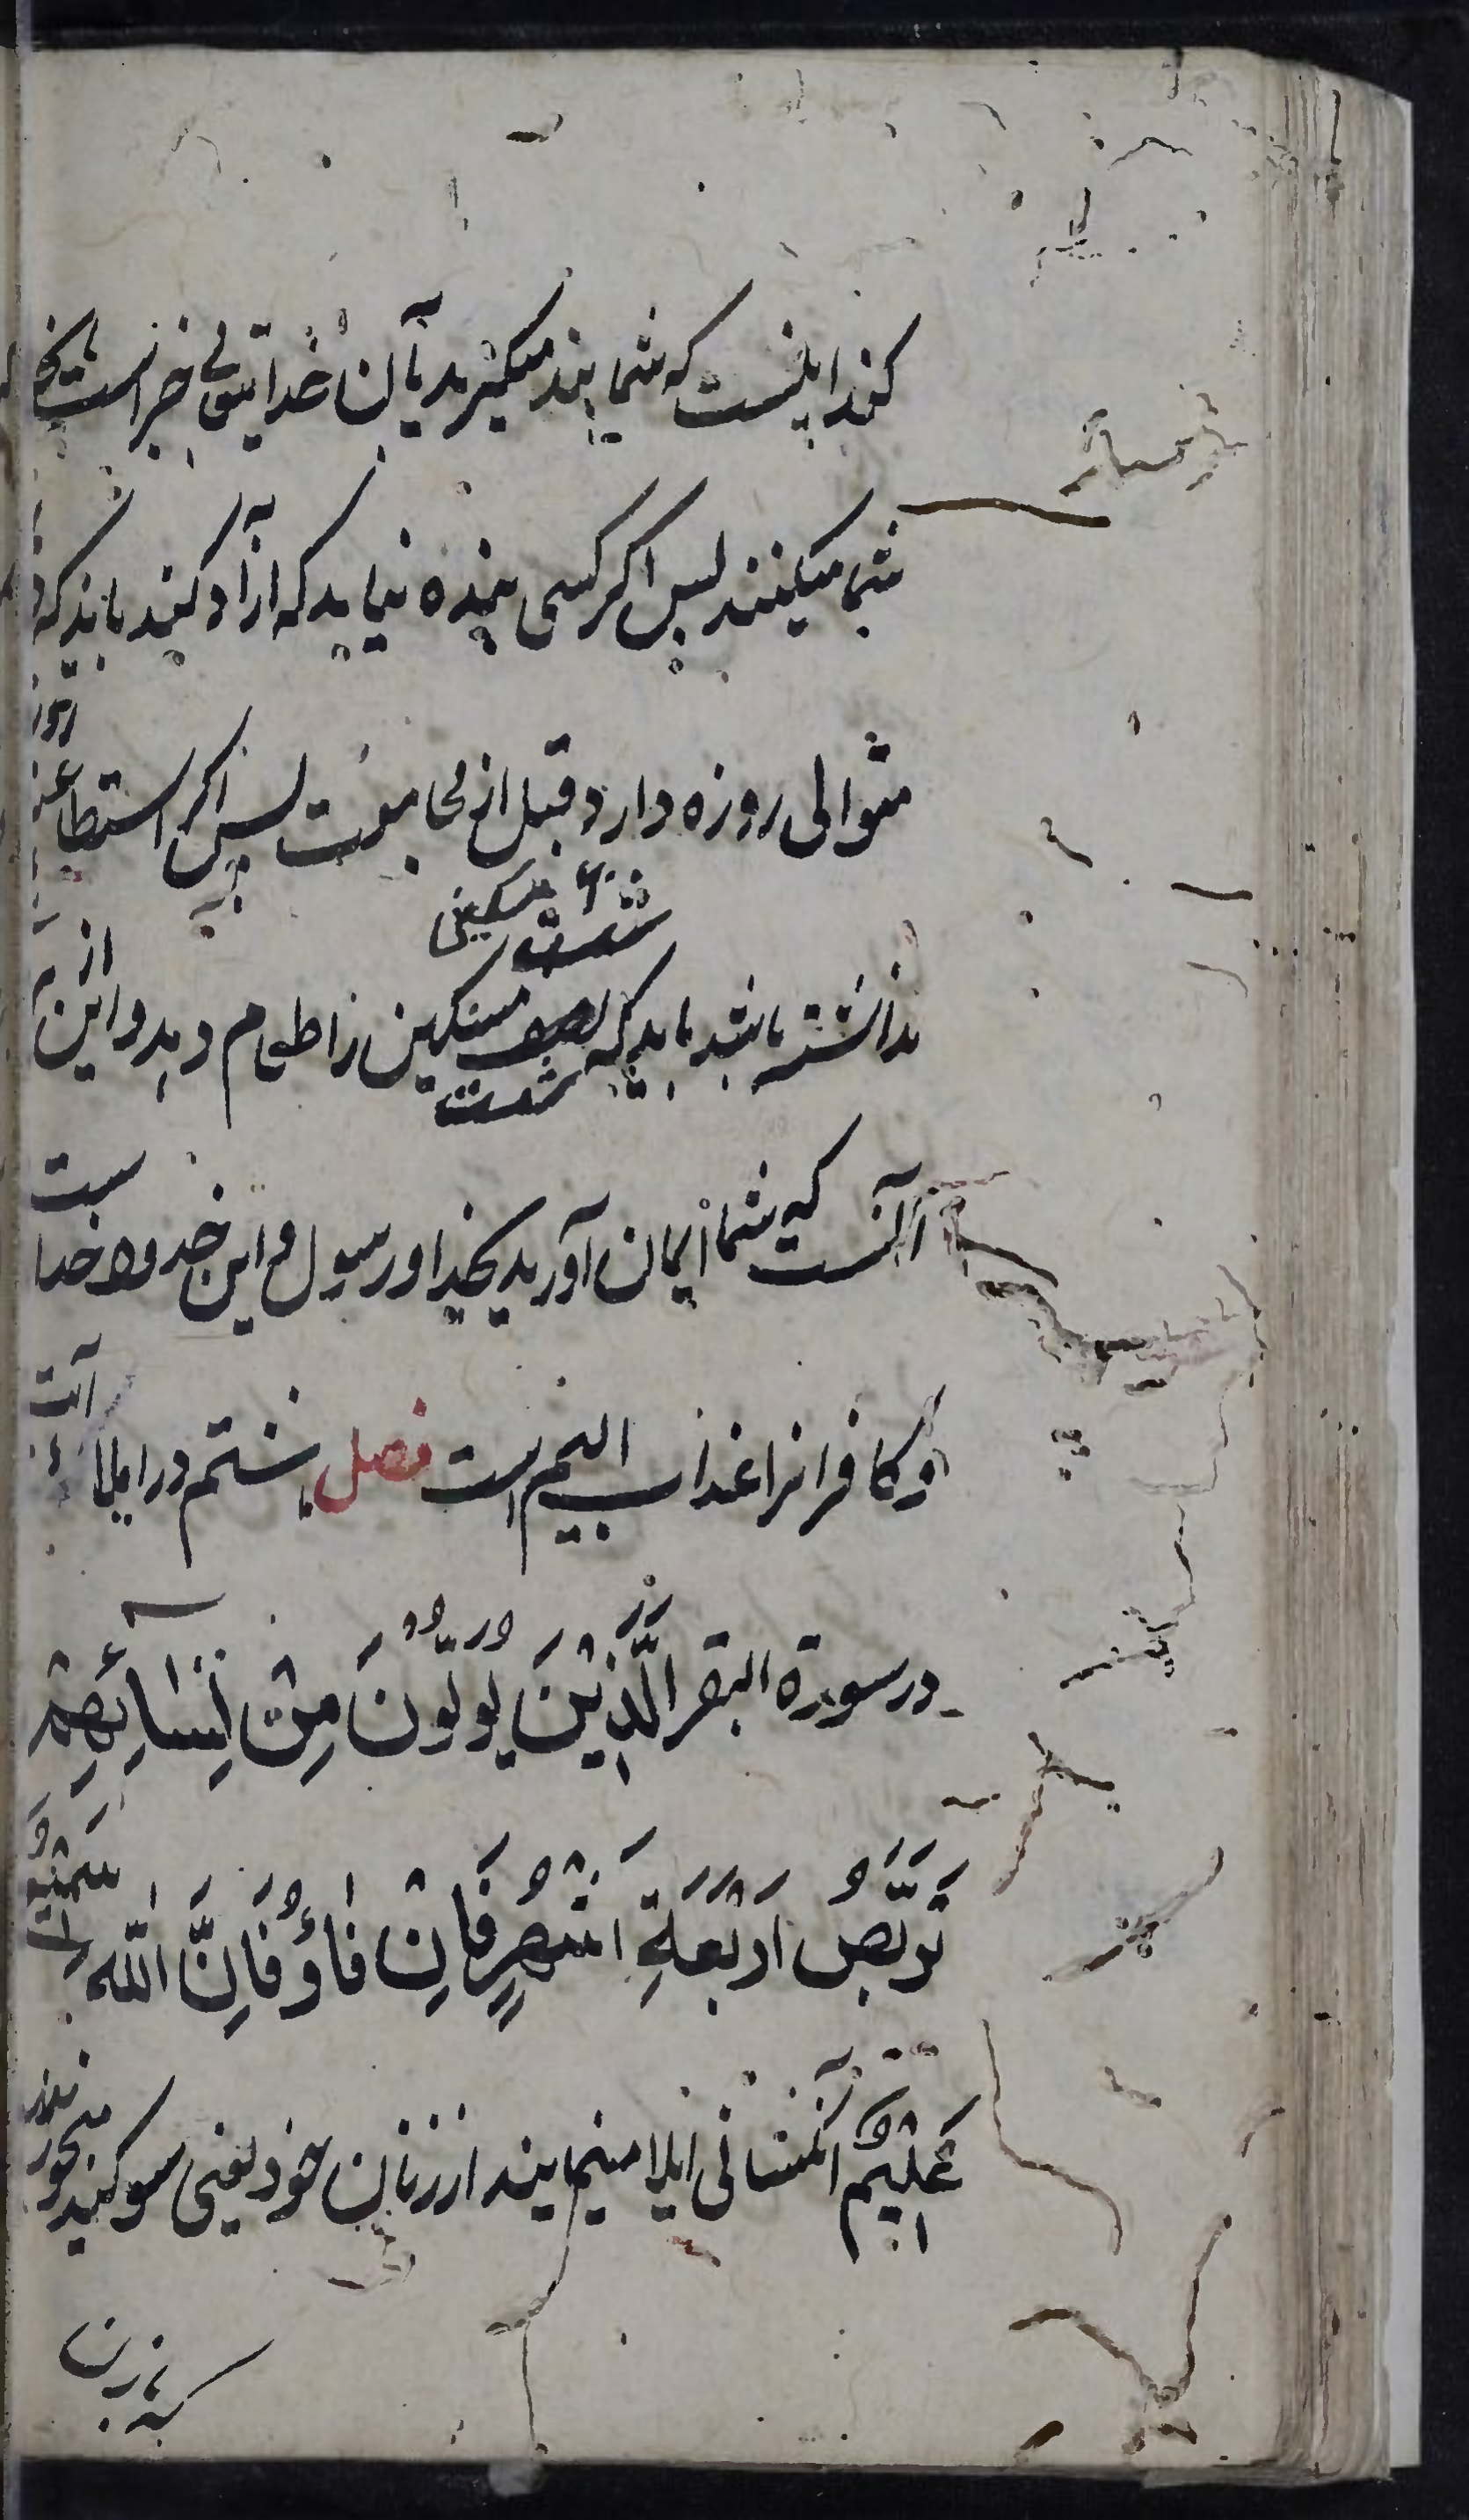 کند اینست که شما پند میگیرید بآن خدایتعالی خبیر است بانچه
شما میکنید پس اگر کسی بنده نیابد که آزاد کند باید که دو ماه
متوالی روزه دارد قبل از مجامعت پس اگر استطاعت روزه
نداشته باشد باید که شصت مسکین را طعام دهد و این از برای
شصت مسکینی
آنست که شما ایمان آورید بخدا و رسول و این حدود خداست
و کافرانرا عذاب الیم است فصل هشتم در ایلا آیت
در سورة البقر الَّذِیْنَ یُولُوْنَ مِنْ نِّسَائِهِمْ
تَرَبُّصُ اَرْبَعَةِ اَشْهُرٍ فَاِنْ فَاؤُ فَاِنَّ اللّٰهَ سَمِیْعٌ
عَلِیْمٌ آنکسانی ایلا مینمایند از زنان خود یعنی سوکند میخورند
که زن